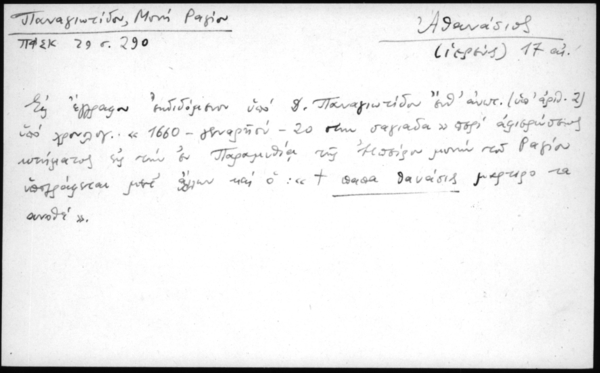 Παναγιωτίδου, Μονή Ραγίου
ΠΦΣΚ 29 σ. 290
Ἀθανάσιος
(ἱερεύς) 17 αἰ.
Εἰς ἔγγραφον ἐκδιδόμενον ὑπό Δ. Παναγιωτίδου ἔνθ' ἀνωτ. (ὑπ' ἀριθ. 2)
ὑπό χρονολογ. «1660 - γεναρηου - 20 στην σαγιαδα» περί ἀφιερώσεως
κτήματος εἰς τήν ἐν Παραμυθίᾳ τῆς Ἠπείρου μονήν τοῦ Ραγίου
ὑπογράφεται μετ' ἄλλων καί ὁ : « + παπα θανάσις μαρτιρο τα
ανοθέ».